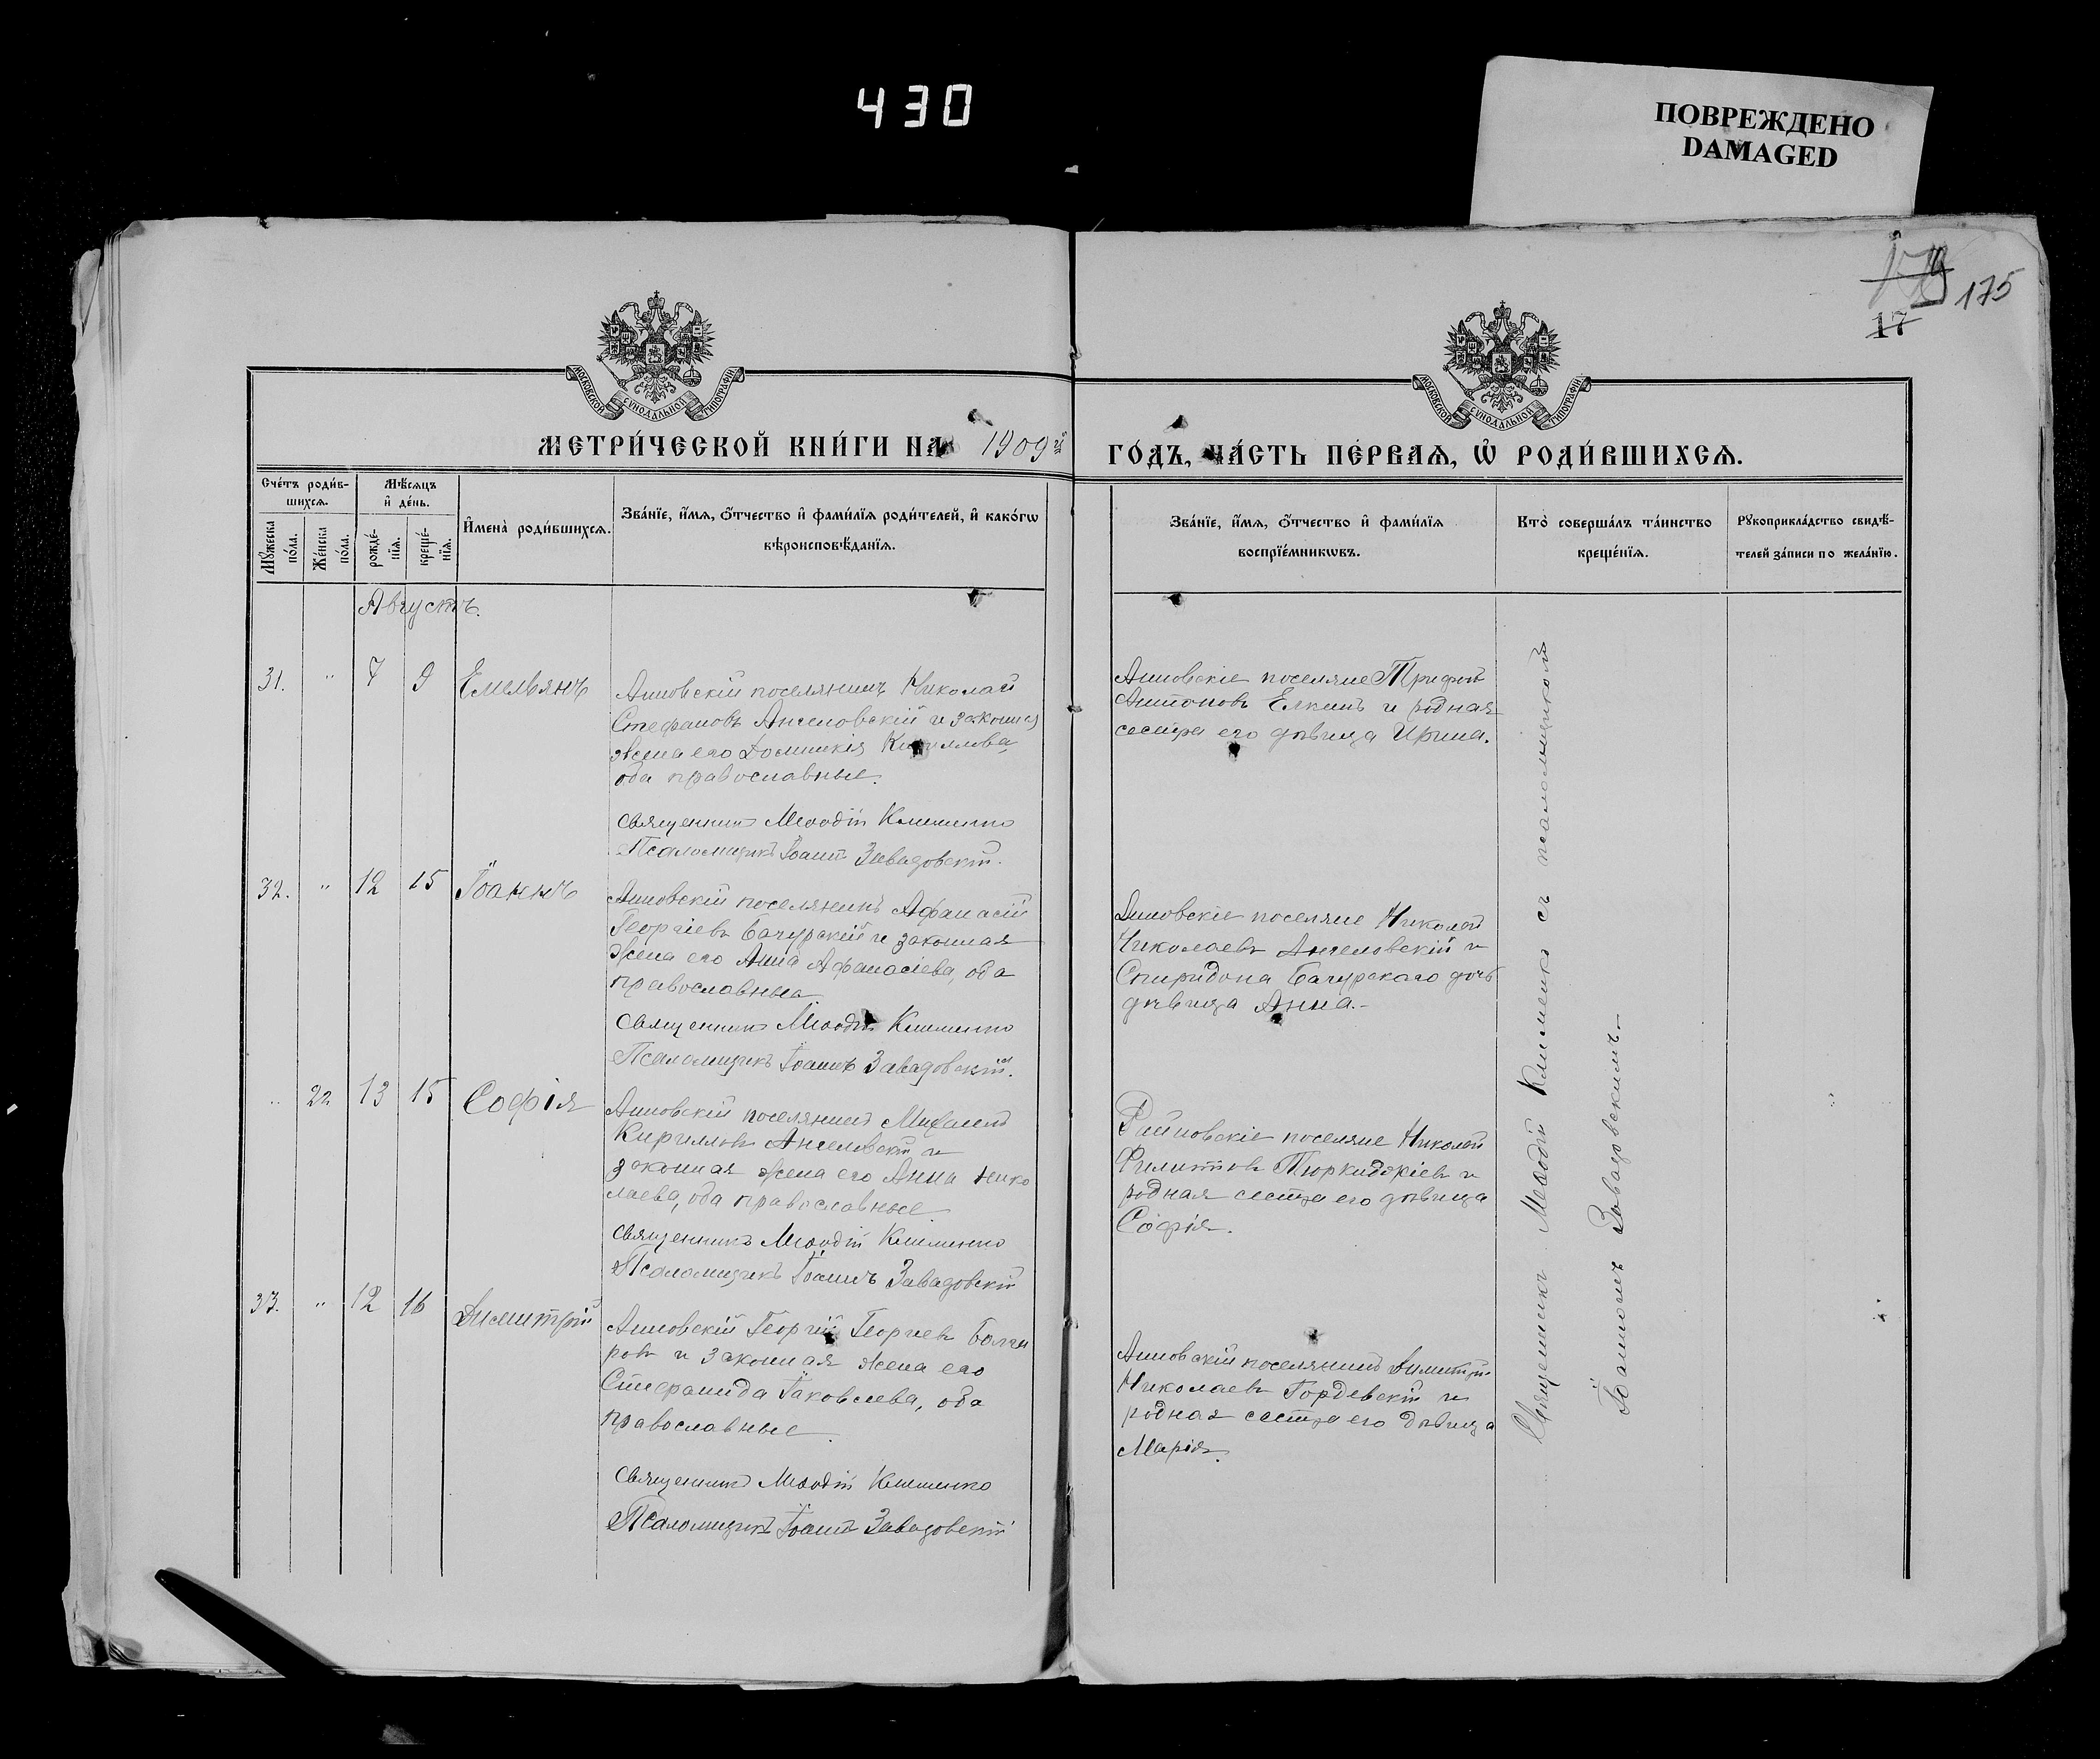 430
ПОВРЕЖДЕНО
DAMAGED
175
17
МОСКОВСКОЙ СѴНОДАЛЬНОЙ ТИПОГРАФІИ
МОСКОВСКОЙ СѴНОДАЛЬНОЙ ТИПОГРАФІИ
МЕТРИ́ЧЕСКОЙ КНИ́ГИ НА 1909й
ГО́ДЪ, ЧА́СТЬ ПЕ́РВАѦ, Ѡ҆ РОДИ́ВШИХСѦ.
Сче́тъ роди́в-
шихсѧ.
Мꙋ́жеска
по́ла.
Же́нска
по́ла.
Мѣ́сѧцъ
и҆ де́нь.
рожде́-
нїѧ.
креще́-
нїѧ.
И҆мена̀ роди́вшихсѧ.
Зва́нїе, и҆́мѧ, ѻ҆́тчество и҆ фами́лїѧ роди́телей, и҆ како́гѡ
вѣроисповѣ́данїѧ.
Зва́нїе, и҆́мѧ, ѻ҆́тчество и҆ фами́лїѧ
воспрїе́мникѡвъ.
Кто̀ соверша́лъ та́инство
креще́нїѧ.
Рꙋкоприкла́дство свидѣ́-
телей за́писи по жела́нїю.
Августъ.
31. " 7 9 Емельянъ
Анновскій поселянинъ Николай
Стефановъ Ангеловскій и законная
жена его Домникія Кириллова,
оба православные.
Священникъ Меѳодій Клименко
Псаломщикъ Іоаннъ Завадовскій.
Анновскіе поселяне Трифонъ
Антоновъ Елкинъ и родная
сестра его дѣвица Ирина.
32. " 12 15 Іоаннъ
Анновскій поселянинъ Афанасій
Георгіевъ Бачурскій и законная
жена его Анна Афанасіева, оба
православные
Священникъ Меѳодій Клименко
Псаломщикъ Іоаннъ Завадовскій.
Анновскіе поселяне Николай
Николаевъ Ангеловскій и
Спиридона Бачурскаго дочь
дѣвица Анна.-
" 22 13 15 Софія
Анновскій поселянинъ Михаилъ
Кирилловъ Ангеловскій и
законная жена его Анна Нико
лаева, оба православные
Священникъ Меѳодій Клименко
Псаломщикъ Іоаннъ Завадовскій
поселяне Николай
Филипповъ Тюркиджіевъ и
родная сестра его дѣвица
Софія.
33. " 12 16 Димитрій
Анновскій Георгій Георгіевъ Болга
ровъ и законная жена его
Стефанида Іаковлева, оба
православные.
Священникъ Меѳодій Клименко
Псаломщикъ Іоаннъ Завадовскій
Анновскій поселянинъ Димитрій
Николаевъ Гордевскій и
родная сестра его дѣвица
Марія.
Священникъ Меѳодій Клименко съ псаломщикомъ
Іоанномъ Завадовскимъ.-